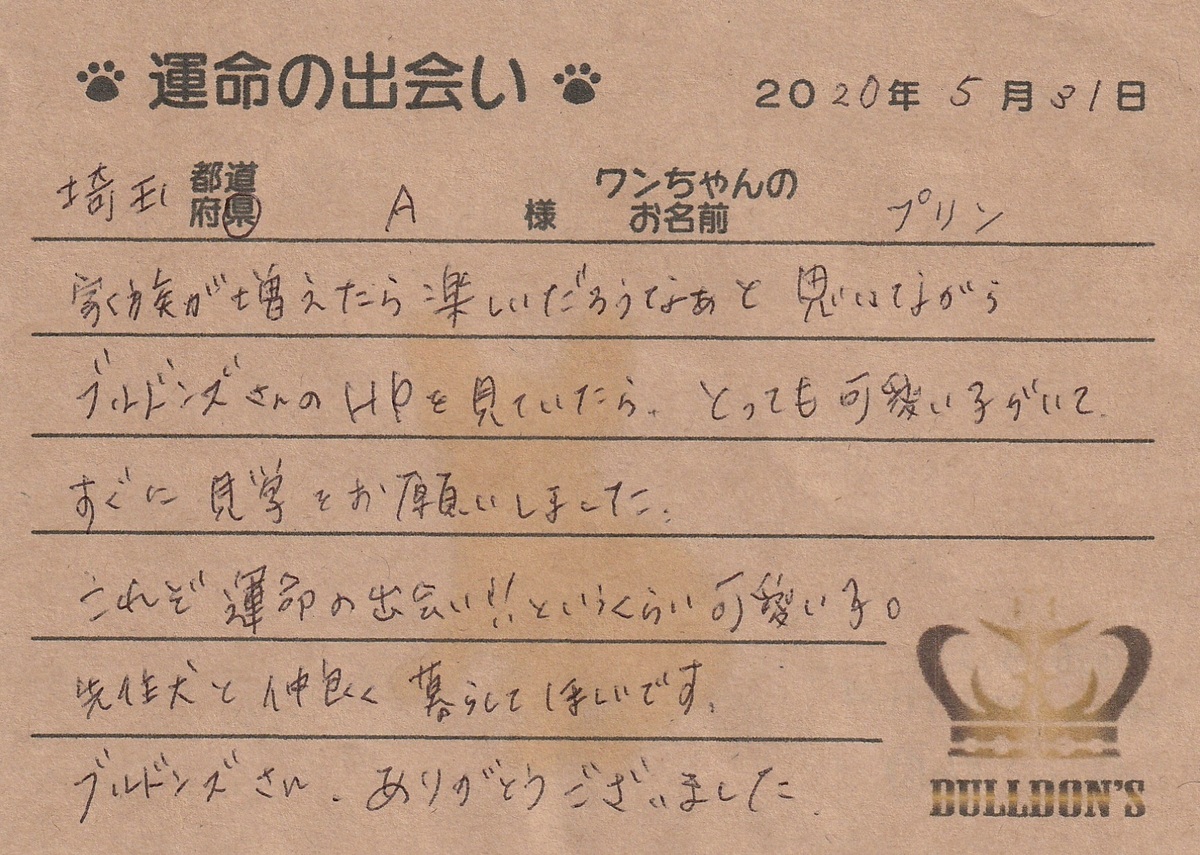 運命の出会い 2020年 5月31日
埼玉 都道府県 A 様 ワンちゃんのお名前 プリン
家族が増えたら楽しいだろうなぁと思いながら
ブルドンズさんのHPを見ていたら、とっても可愛い子がいて
すぐに見学をお願いしました。
これぞ運命の出会い!!というくらい可愛い子。
先住犬と仲良く暮らしてほしいです。
ブルドンズさん、ありがとうございました
BULLDON'S